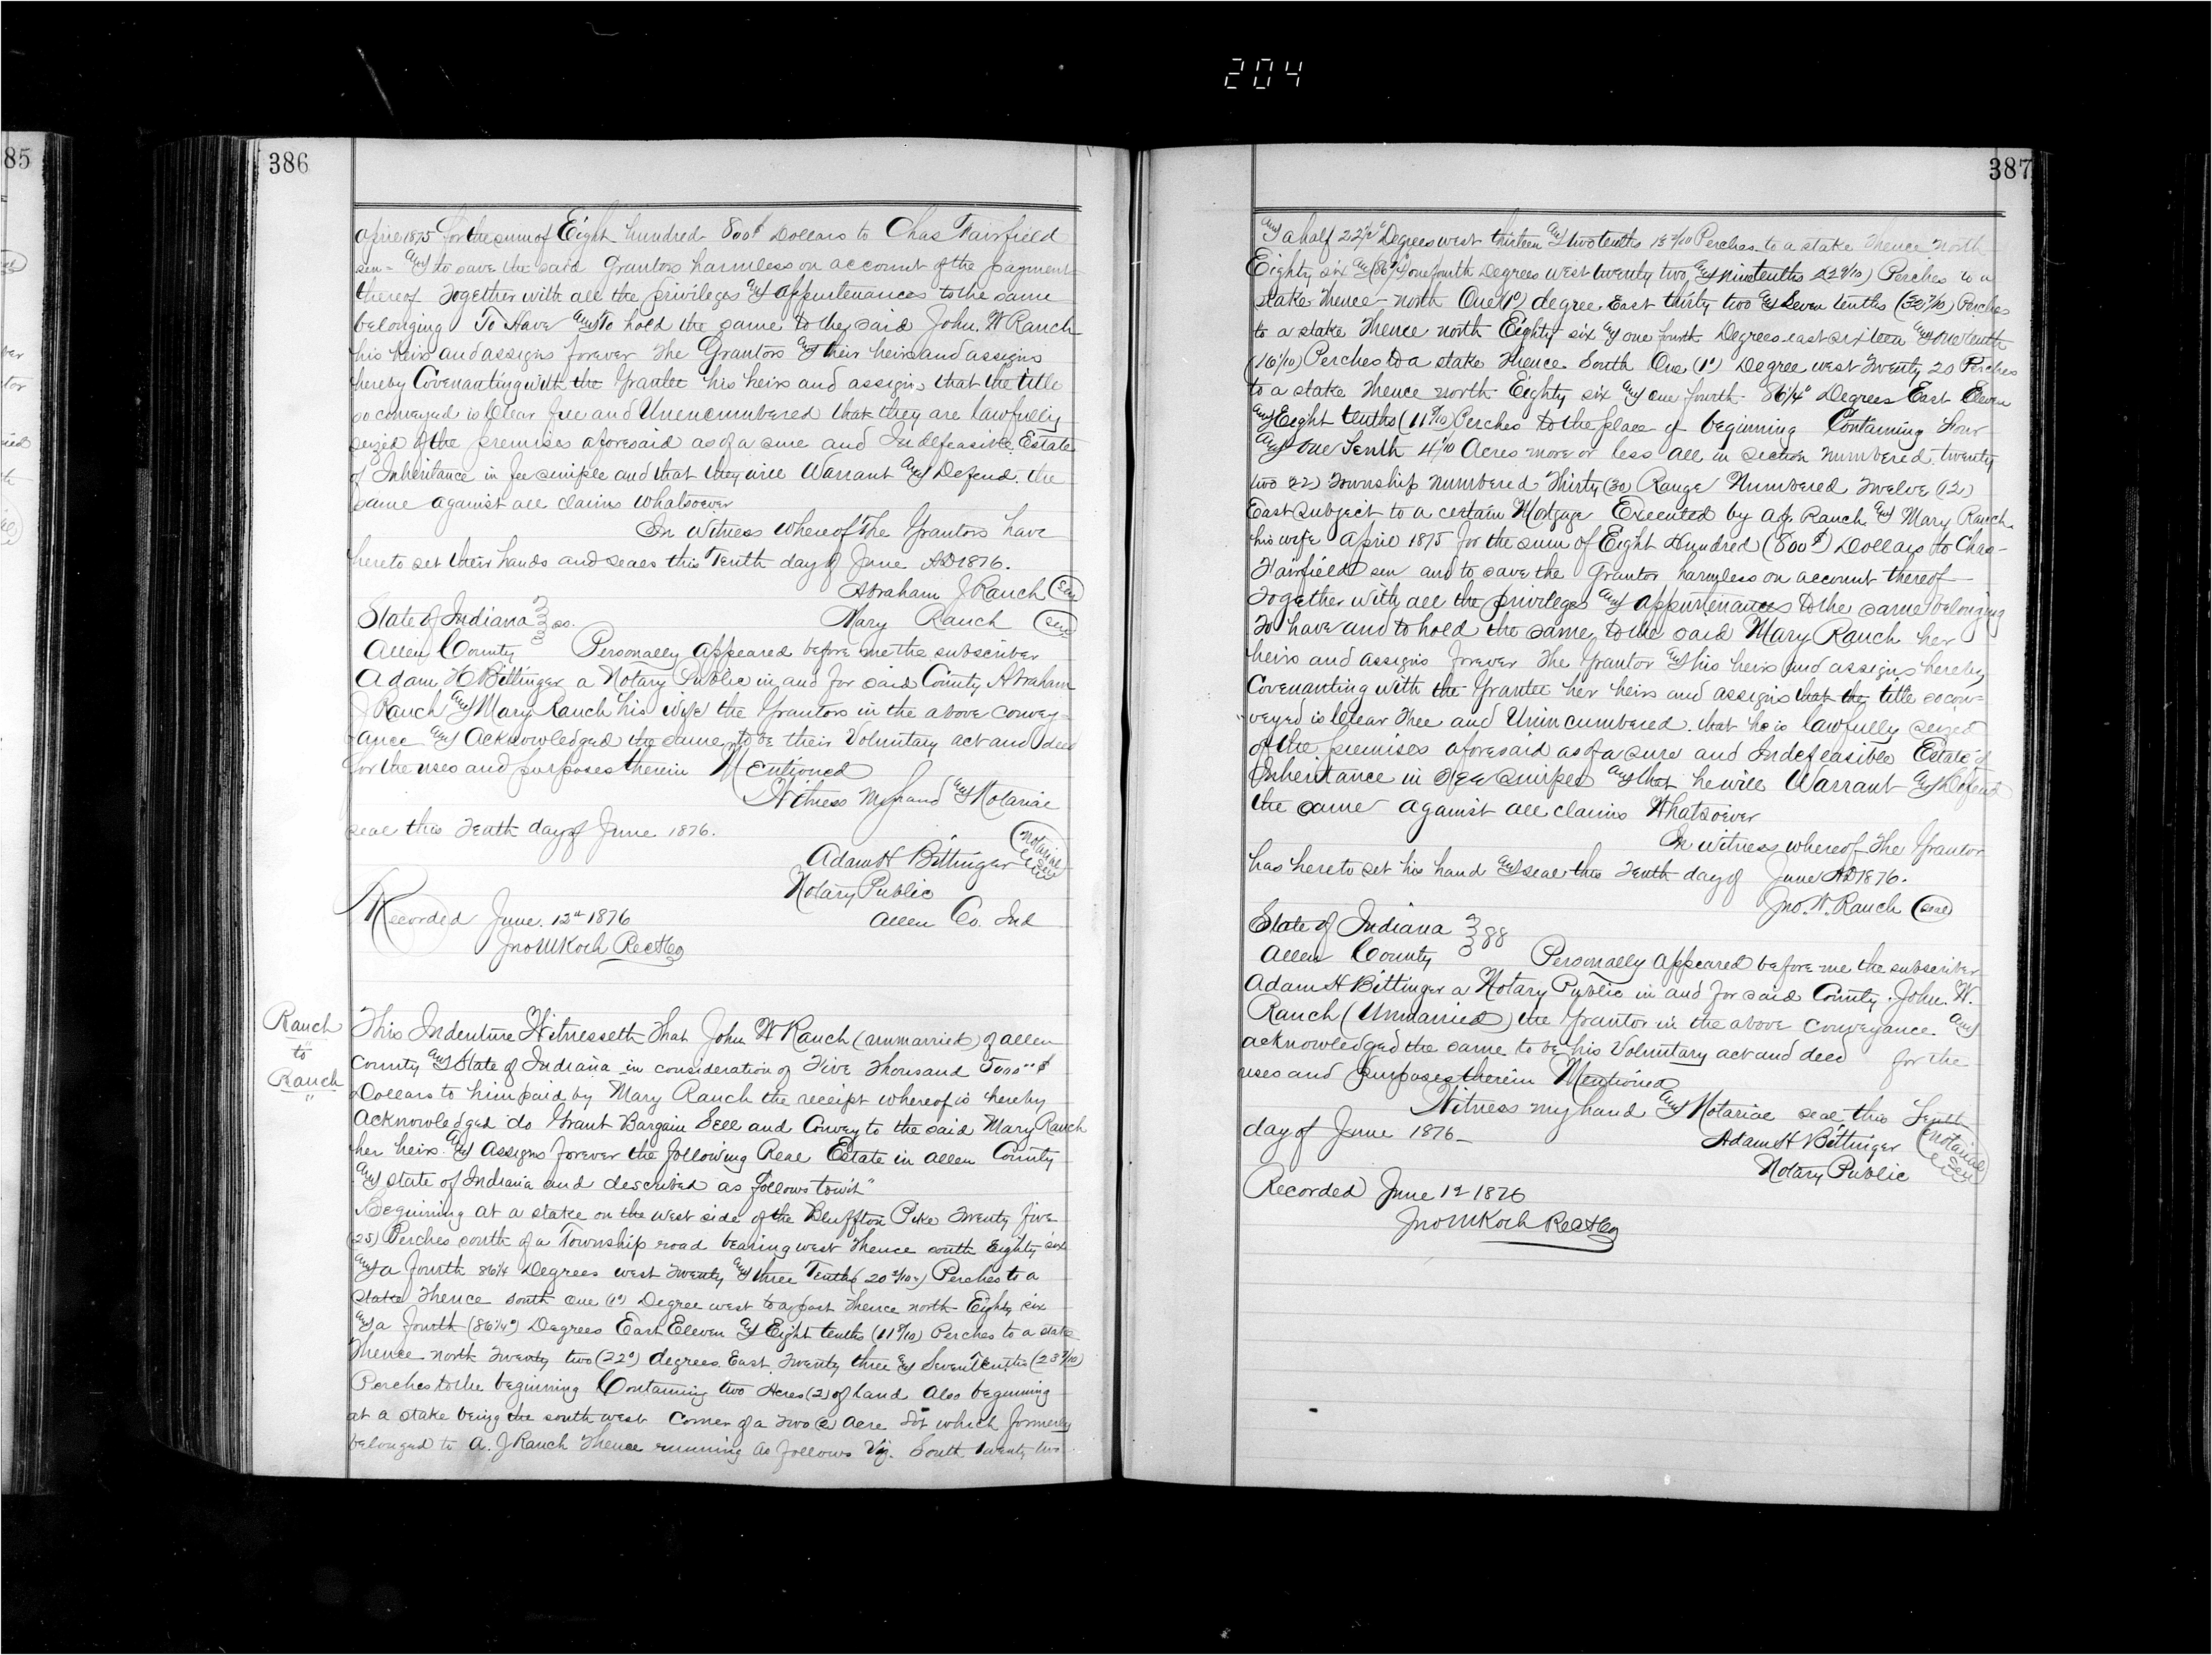 204
85
386
april 1875 for the sum of Eight hundred 800$ Dollars to Chas Fairfield
sen= and to save the said Grantors harmless on account of the payment
thereof Together with all the privileges and appurtenances to the same
belonging To Have and To hold the same to the said John. W Rauch
his heirs and assigns forever The Grantors and their heirs and assigns
hereby Covenanting with the Grantee his heirs and assigns that the title
so conveyed is Clear free and Unencumbered that they are lawfully
seized of the premises aforesaid as of a sure and Indefeasible Estate
of Inheritance in fee simple and that they will Warrant and Defend. the
same against all claims whatsoever
In Witness whereof The Grantors have
hereto set their hands and seals this Tenth day of June AD 1876.
Abraham J Rauch (Seal)
State of Indiana } ss. Mary Rauch (Seal)
Allen County } Personally appeared before me the subscriber
Adam H Bittinger a Notary Public in and for said County Abraham
J Rauch and Mary Rauch his wife the Grantors in the above convey-
ance and Acknowledged the same to be their Voluntary act and deed
for the uses and purposes therein Mentioned
Witness My hand and Notarial
seal this Tenth day of June 1876.
Adam H Bittinger (Notarial Seal)
Notary Public
Allen Co. Ind
Recorded June. 12th 1876
Jno M Koch Rec A Co
Rauch
to
Rauch
"
This Indenture Witnesseth That John W Rauch (unmarried) of allen
County and State of Indiana in consideration of Five Thousand 5000$
Dollars to him paid by Mary Rauch the receipt whereof is hereby
Acknowledged do Grant Bargain Sell and Convey to the said Mary Rauch
her heirs and Assigns forever the following Real Estate in Allen County
and State of Indiana and described as follows towit"
Beginning at a stake on the west side of the Bluffton Pike Twenty five
(25) Perches south of a Township road bearing west Thence south Eighty six
and a fourth 86 1/4 Degrees west Twenty and three Tenths (20 3/10) Perches to a
stake Thence south one (1°) Degree west to a post Thence north Eighty six
and a fourth (86 1/4°) Degrees East Eleven and Eight tenths (11 8/10) Perches to a stake
Thence north Twenty two (22°) degrees East Twenty three and Seven Tenths (23 7/10)
Perches to the beginning Containing two Acres (2) of land Also beginning
at a stake being the south west Corner of a Two (2) Acre Lot which formerly
belonged to A. J Rauch Thence running as follows Viz. South twenty two
387
and a half 22 1/2° Degrees west thirteen and two tenths 13 2/10 Perches to a stake Thence north
Eighty six and (86 1/4) one fourth Degrees west twenty two and nine tenths 22 9/10) Perches to a
stake Thence north One (1°) degree East thirty two and Seven tenths (32 7/10) Perches
to a stake Thence north Eighty six and one fourth Degrees east sixteen and one tenth
(16 1/10) Perches to a stake Thence South One (1°) Degree west Twenty 20 Perches
to a stake Thence north Eighty six and one fourth 86 1/4° Degrees East Eleven
and Eight tenths (11 8/10) Perches to the place of beginning Containing Four
and one Tenth 4 1/10 Acres more or less all in section numbered twenty
two 22) Township numbered Thirty (30) Range Numbered Twelve (12)
East subject to a certain Mortgage Executed by A.J. Rauch and Mary Rauch
his wife April 1875 for the sum of Eight Hundred (800$) Dollars to Chas-
Fairfield sen and to save the Grantor harmless on account thereof
Together with all the privileges and appurtenances to the same belonging
To have and to hold the same to the said Mary Rauch her
heirs and assigns forever The Grantor and his heirs and assigns hereby
Covenanting with the Grantee her heirs and assigns that the title so con-
veyed is Clear Free and Unincumbered. that he is lawfully seized
of the premises aforesaid as of a sure and Indefeasible Estate of
Inheritance in Fee Simple and that he will Warrant and Defend
the same against all claims Whatsoever
In witness whereof The Grantor
has hereto set his hand and seal this Tenth day of June AD 1876.
Jno. W. Rauch (seal)
State of Indiana } ss
Allen County } Personally appeared before me the subscriber
Adam H Bittinger a Notary Public in and for said County. John. W.
Rauch (Unmarried) the Grantor in the above conveyance. and
acknowledged the same to be his Voluntary act and deed for the
uses and purposes therein Mentioned
Witness my hand and Notarial seal this Tenth
day of June 1876_
Adam H Bittinger (Notarial Seal)
Notary Public
Recorded June 12 1876
Jno M Koch Rec A Co